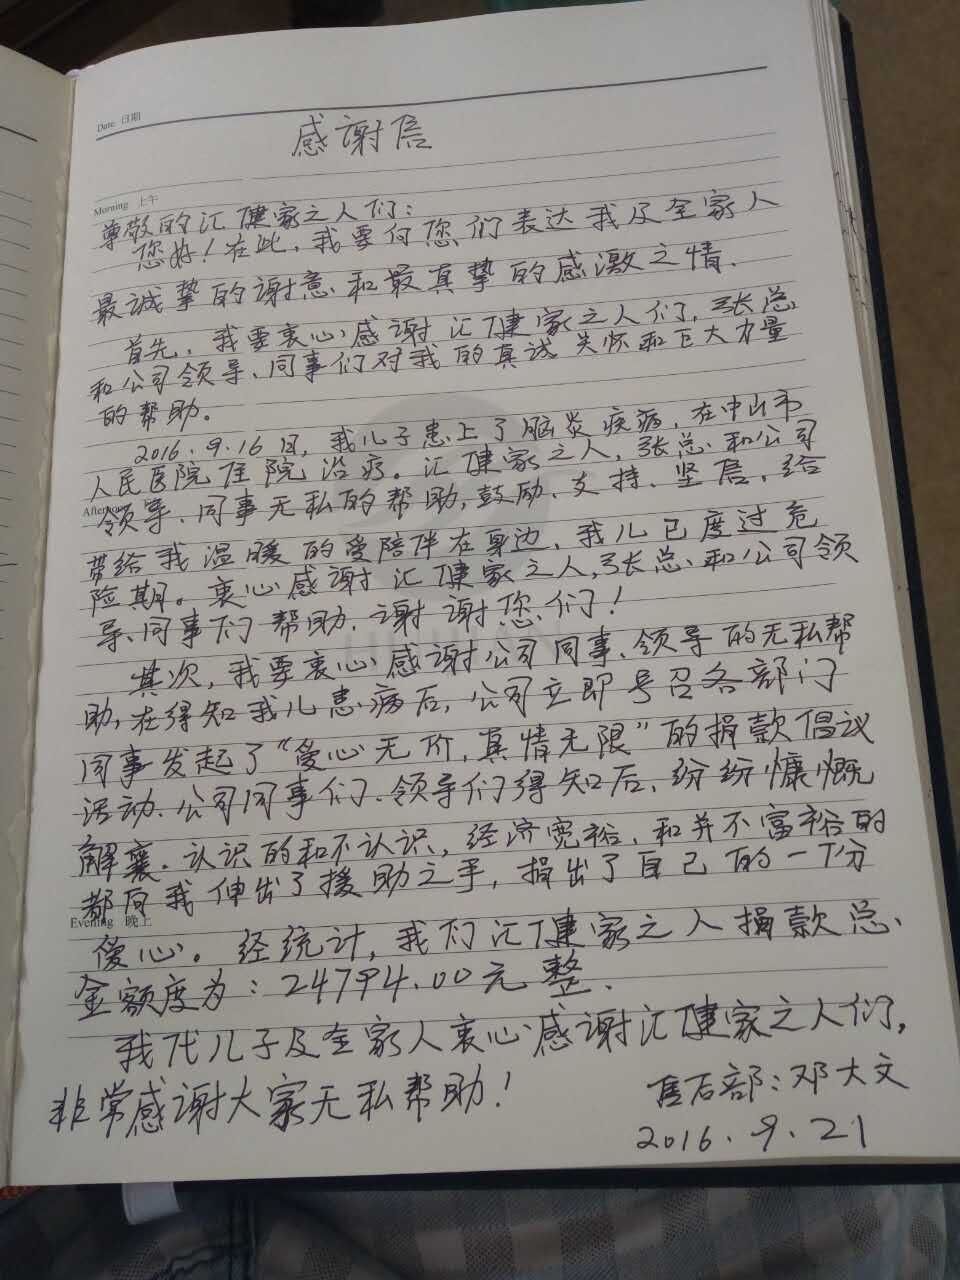 Date 日期
感谢信
Morning 上午
尊敬的汇健家之人们：
您好！在此，我要向您们表达我及全家人
最诚挚的谢意和最真挚的感激之情.
首先，我要衷心感谢汇健家之人们，张总
和公司领导、同事们对我的真诚关怀和巨大力量
的帮助。
2016.9.16日，我儿子患上了脑炎疾病，在中山市
人民医院住院治疗。汇健家之人，张总和公司
Afternoon
领导、同事无私的帮助，鼓励、支持、坚信、给
带给我温暖的爱陪伴在身边，我儿已度过危
险期。衷心感谢汇健家之人，张总和公司领
导、同事们帮助，谢谢您们！
其次，我要衷心感谢公司同事、领导的无私帮
助，在得知我儿患病后，公司立即号召各部门
同事发起了“爱心无价，真情无限”的捐款倡议
活动、公司同事们、领导们得知后，纷纷慷慨
解囊，认识的和不认识，经济宽裕，和并不富裕的
都向我伸出了援助之手，捐出了自己的一份
Evening 晚上
爱心。经统计，我们汇健家之人捐款总
金额度为：24794.00元整.
我代儿子及全家人衷心感谢汇健家之人们，
非常感谢大家无私帮助！
售后部：邓大文
2016.9.21